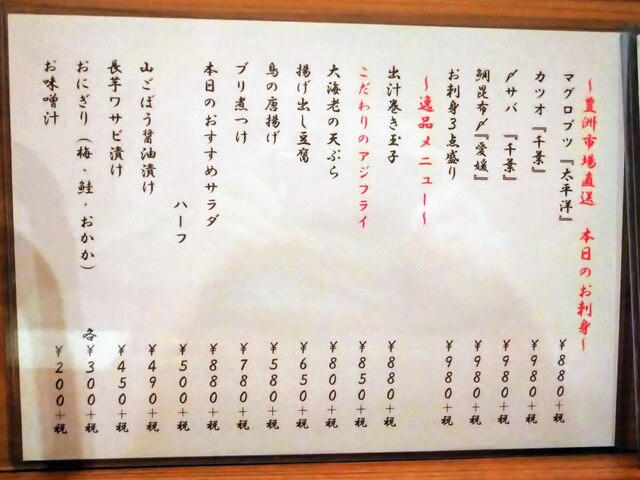 ～豊洲市場直送 本日のお刺身～
マグロブツ『太平洋』 ￥880＋税
カツオ『千葉』 ￥980＋税
〆サバ『千葉』 ￥980＋税
鯛昆布〆『愛媛』 ￥980＋税
お刺身3点盛り ￥980＋税
～逸品メニュー～
出汁巻き玉子 ￥880＋税
こだわりのアジフライ ￥850＋税
大海老の天ぷら ￥800＋税
揚げ出し豆腐 ￥650＋税
鳥の唐揚げ ￥580＋税
ブリ煮つけ ￥780＋税
本日のおすすめサラダ ￥880＋税
ハーフ ￥500＋税
山ごぼう醤油漬け ￥490＋税
長芋ワサビ漬け ￥450＋税
おにぎり（梅・鮭・おかか） 各￥300＋税
お味噌汁 ￥200＋税